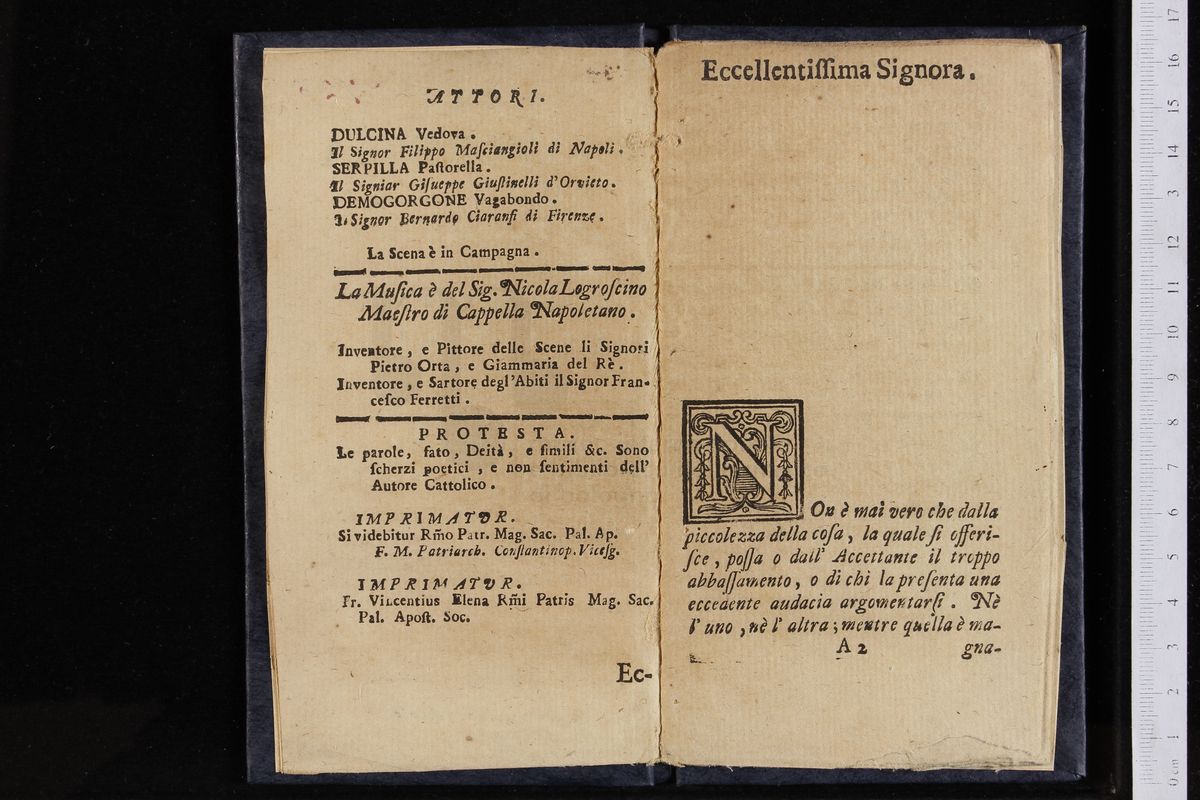 ATTORI.
DULCINA Vedova.
Il Signor Filippo Maſciangioli di Napoli.
SERPILLA Paſtorella.
Il Signiar Giſueppe Giuſtinelli d'Orvieto.
DEMOGORGONE Vagabondo.
Il Signor Bernardo Ciaranfi di Firenze.
La Scena è in Campagna.
La Muſica è del Sig. Nicola Logroſcino
Maeſtro di Cappella Napoletano.
Inventore, e Pittore delle Scene li Signori
Pietro Orta, e Giammaria del Rè.
Inventore, e Sartore degl'Abiti il Signor Fran-
ceſco Ferretti.
PROTESTA.
Le parole, fato, Deità, e ſimili &c. Sono
ſcherzi poetici, e non ſentimenti dell'
Autore Cattolico.
IMPRIMATUR.
Si videbitur Rm̃o Patr. Mag. Sac. Pal. Ap.
F. M. Patriarch. Conſtantinop. Viceſg.
IMPRIMATUR.
Fr. Vincentius Elena Rm̃i Patris Mag. Sac.
Pal. Apoſt. Soc.
Ec-
Eccellentiſſima Signora.
NOn è mai vero che dalla
piccolezza della coſa, la quale ſi offeri-
ſce, poſſa o dall' Accettante il troppo
abbaſſamento, o di chi la preſenta una
eccedente audacia argomentarſi. Nè
l'uno, nè l'altra; mentre quella è ma-
A 2 gna-
17
16
15
14
13
12
11
10
9
8
7
6
5
4
3
2
1
0 cm